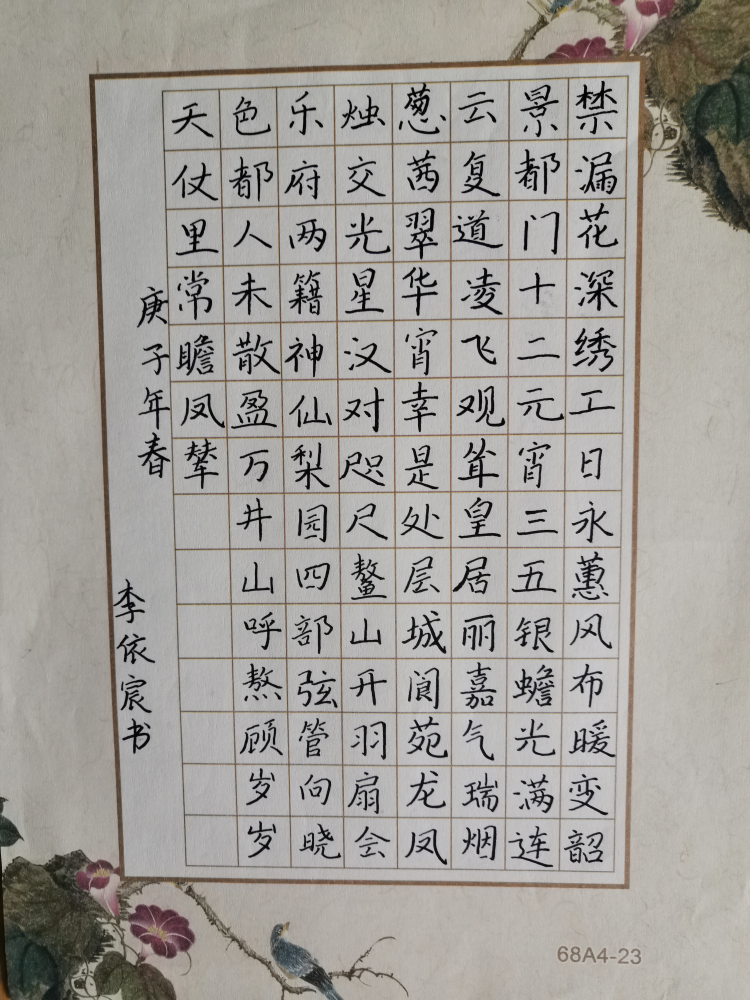 禁漏花深绣工日永蕙风布暖变韶
景都门十二元宵三五银蟾光满连
云复道凌飞观耸皇居丽嘉气瑞烟
葱茜翠华宵幸是处层城阆苑龙凤
烛交光星汉对咫尺鳌山开羽扇会
乐府两籍神仙梨园四部弦管向晓
色都人未散盈万井山呼熬顾岁岁
天仗里常瞻凤辇
庚子年春
李依宸书
68A4-23